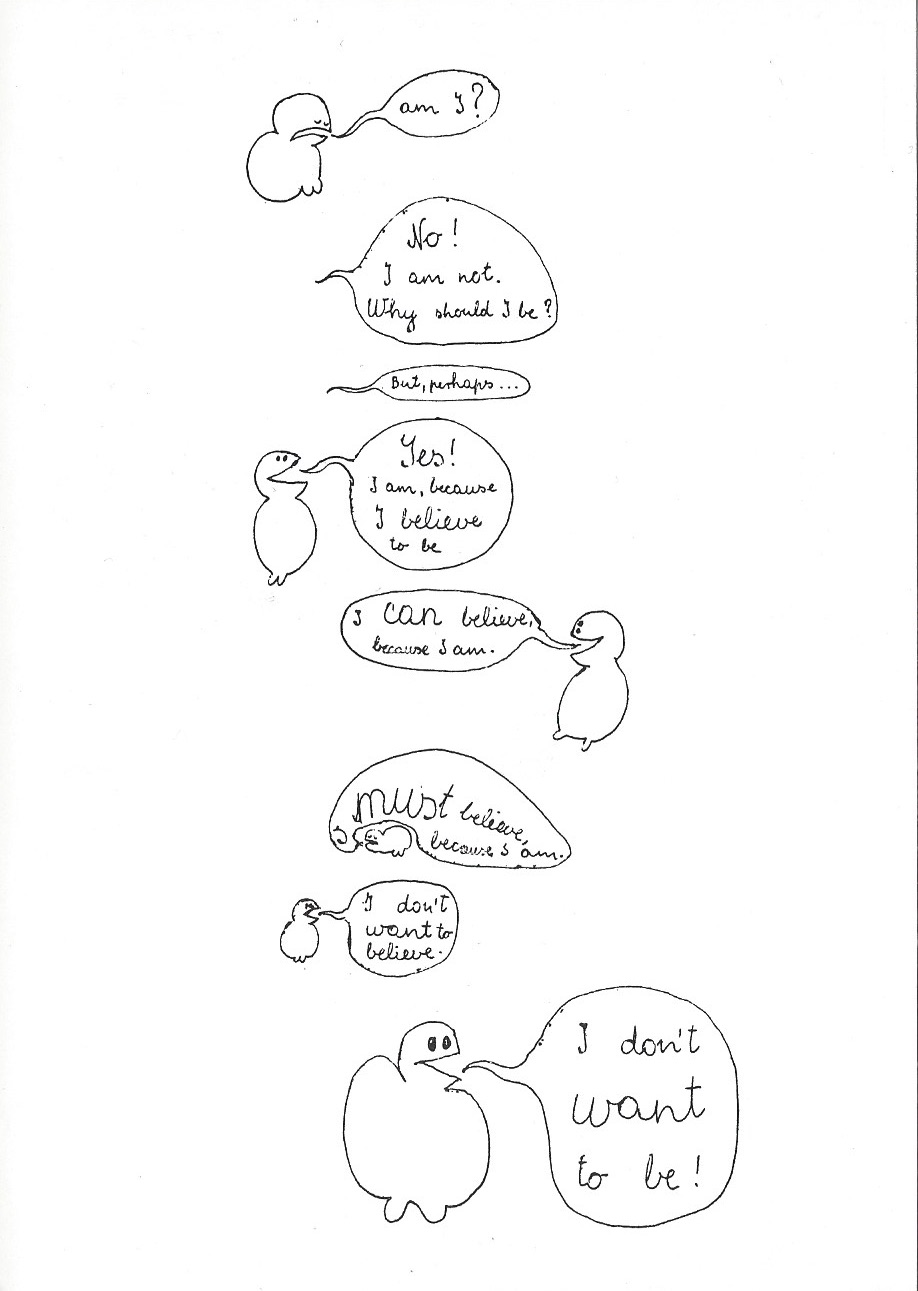 am I?
No!
I am not.
Why should I be?
But, perhaps...
Yes!
I am, because
I believe
to be
I can believe,
because I am.
must believe,
because I am.
I don't
want to
believe.
I don't
want
to be!